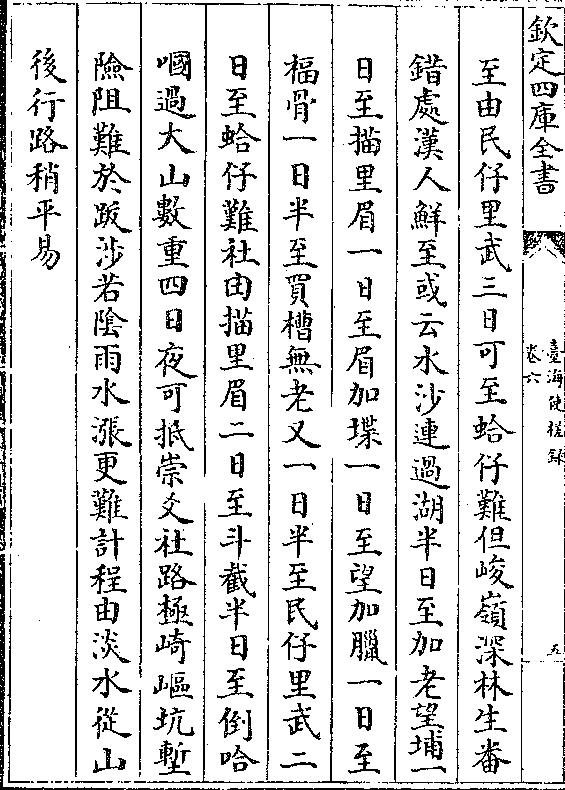 欽定四庫全書
臺海使槎録
卷六
五
至由民仔里武三日可至蛤仔難但峻嶺深林生番
錯處漢人鮮至或云水沙連過湖半日至加老望埔一
日至描里眉一日至眉加堞一日至望加臘一日至
福骨一日半至買槽無老又一日半至民仔里武二
日至蛤仔難社由描里眉二日至斗截半日至倒咯
嘓過大山數重四日夜可抵崇爻社路極崎嶇坑塹
險阻難於跋涉若陰雨水漲更難計程由淡水從山
後行路稍平易